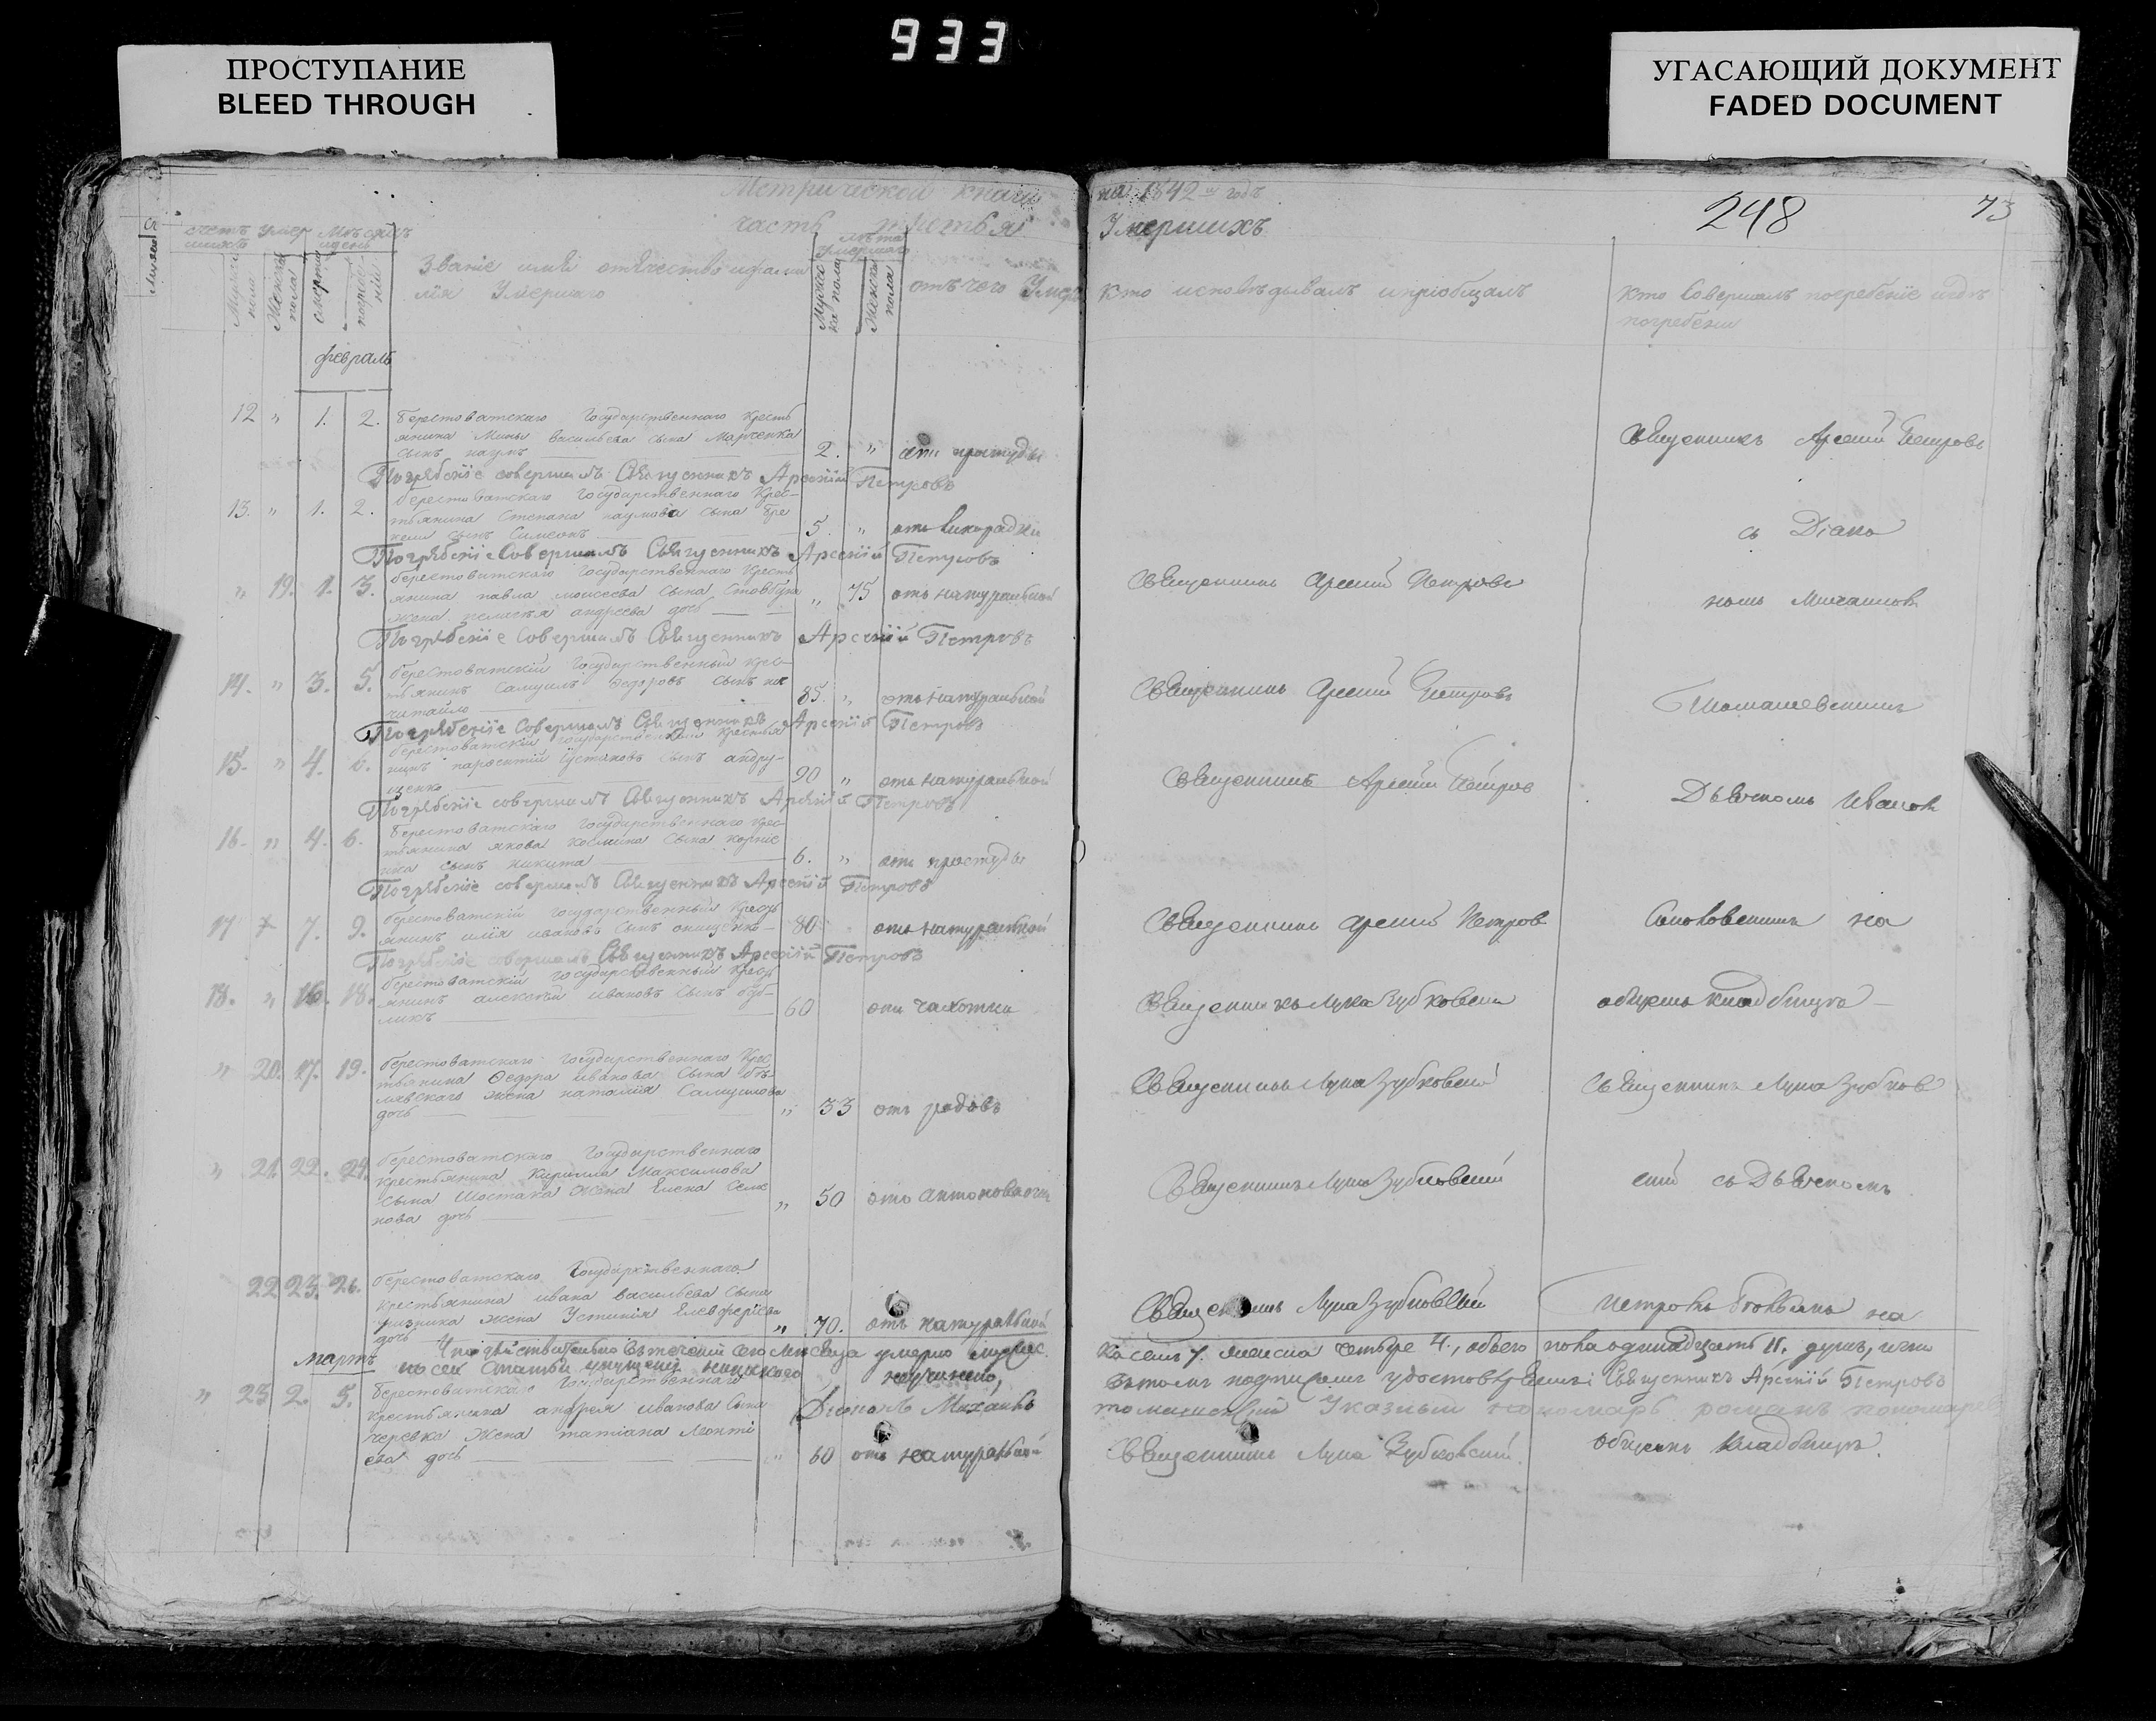 933
ПРОСТУПАНИЕ
BLEED THROUGH
УГАСАЮЩИЙ ДОКУМЕНТ
FADED DOCUMENT
Метрической книги на 1842 годъ
часть третья Умершихъ
248
73
Мужеска пола
Женска пола
смерти
погребенія
Званіе имя отечество и фамилія Умершаго
лѣта умершаго
Мужеска пола
Женска пола
отъ чего Умеръ
Кто исповѣдывалъ и пріобщалъ
Кто Совершалъ погребеніе и гдѣ
погребены
февраль
12 " 1. 2. берестоватскаго Государственнаго Кресть
янина Мины васильева сына Марченка
сынъ наумъ 2. " отъ простуды
Священникъ Арсеній Петровъ
Погрѣбеніе совершилъ Священникъ Арсеній Петровъ
13. " 1. 2. берестоватскаго Государственнаго Крес-
тьянина Степана наумова сына
сынъ Симеонъ 5. " отъ лихорадки
съ Діако
Погрѣбеніе Совершилъ Священникъ Арсеній Петровъ
" 19. 1. 3. берестоватскаго Государственнаго Кресть
янина павла моисеева сына
жена пелагея андреева дочь " 75 отъ натуральной
Священникъ Арсеній Петровъ
номъ
Погрѣбеніе Совершилъ Священникъ Арсеній Петровъ
14. " 3. 5. берестоватскій Государственный крес-
тьянинъ Самуилъ Федоровъ сынъ не
читайло 85. " отъ натуральной
Священникъ Арсеній Петровъ
Погрѣбеніе Совершилъ Священникъ Арсеній Петровъ
15. " 4. 6. берестоватскій Государственный крестья
нинъ сынъ андру-
щенко 90 " отъ натуральной
Священникъ Арсеній Петров
Дьячкомъ Иваном
Погрѣбеніе совершилъ Священникъ Арсеній Петровъ
16. " 4. 6. берестоватскаго Государственнаго Крес-
тьянина якова космина сына корніе
нка сынъ никита 6. " отъ простуды
Погрѣбеніе совершилъ Священникъ Арсеній Петровъ
17 7. 9. берестоватскій государственный Кресть
янинъ илія ивановъ сынъ онищенко 80 отъ натуральной
Священникъ Арсеній Петров
на
Погрѣбеніе совершилъ Священникъ Арсеній Петровъ
18. " 16. 18. берестоватскій государственный Кресть
янинъ алексѣй ивановъ сынъ буб-
ликъ 60 отъ чахотки
Священникъ Лука Зубковскій
общемъ кладбищѣ
" 20. 17. 19. берестоватскаго Государственнаго Крес
тьянина Федора иванова сына бѣ-
лявскаго жена наталія Самуилова
дочь " 33 отъ родовъ
Священникъ Лука Зубковскій
Священникъ Лука Зубков
" 21. 22. 24. берестоватскаго Государственнаго
крестьянина Кирилла Максимова
сына Шостака жена Елена Семе
нова дочь " 50 отъ антонова огня
Священникъ Лука Зубковскій
скій съ Дьячкомъ
22 23. 26. берестоватскаго Государственнаго
крестьянина ивана васильева сына
жена Устинія Елевферіева
дочь " 70. отъ натуральной
Священникъ Лука Зубковскій
на
Что дѣйствительно въ теченіи сего мѣсяца умерло мужес
ка семь 7. женска четыре 4., обоего пола одинадцать 11. душъ, и что
по сей статьи упущенія никакого неучинено,
въ томъ подписомъ удостовѣряемъ Священникъ Арсеній Петровъ
Діаконъ Михаилъ
Томашевскій Указный пономарь романъ пономарев
мартъ
" 23 2. 5. берестоватскаго Государственнаго
крестьянина андрея иванова сына
черевка жена татіана леонті
ева дочь " 60 отъ натуральной
Священникъ Лука Зубковскій.
общемъ кладбищѣ.